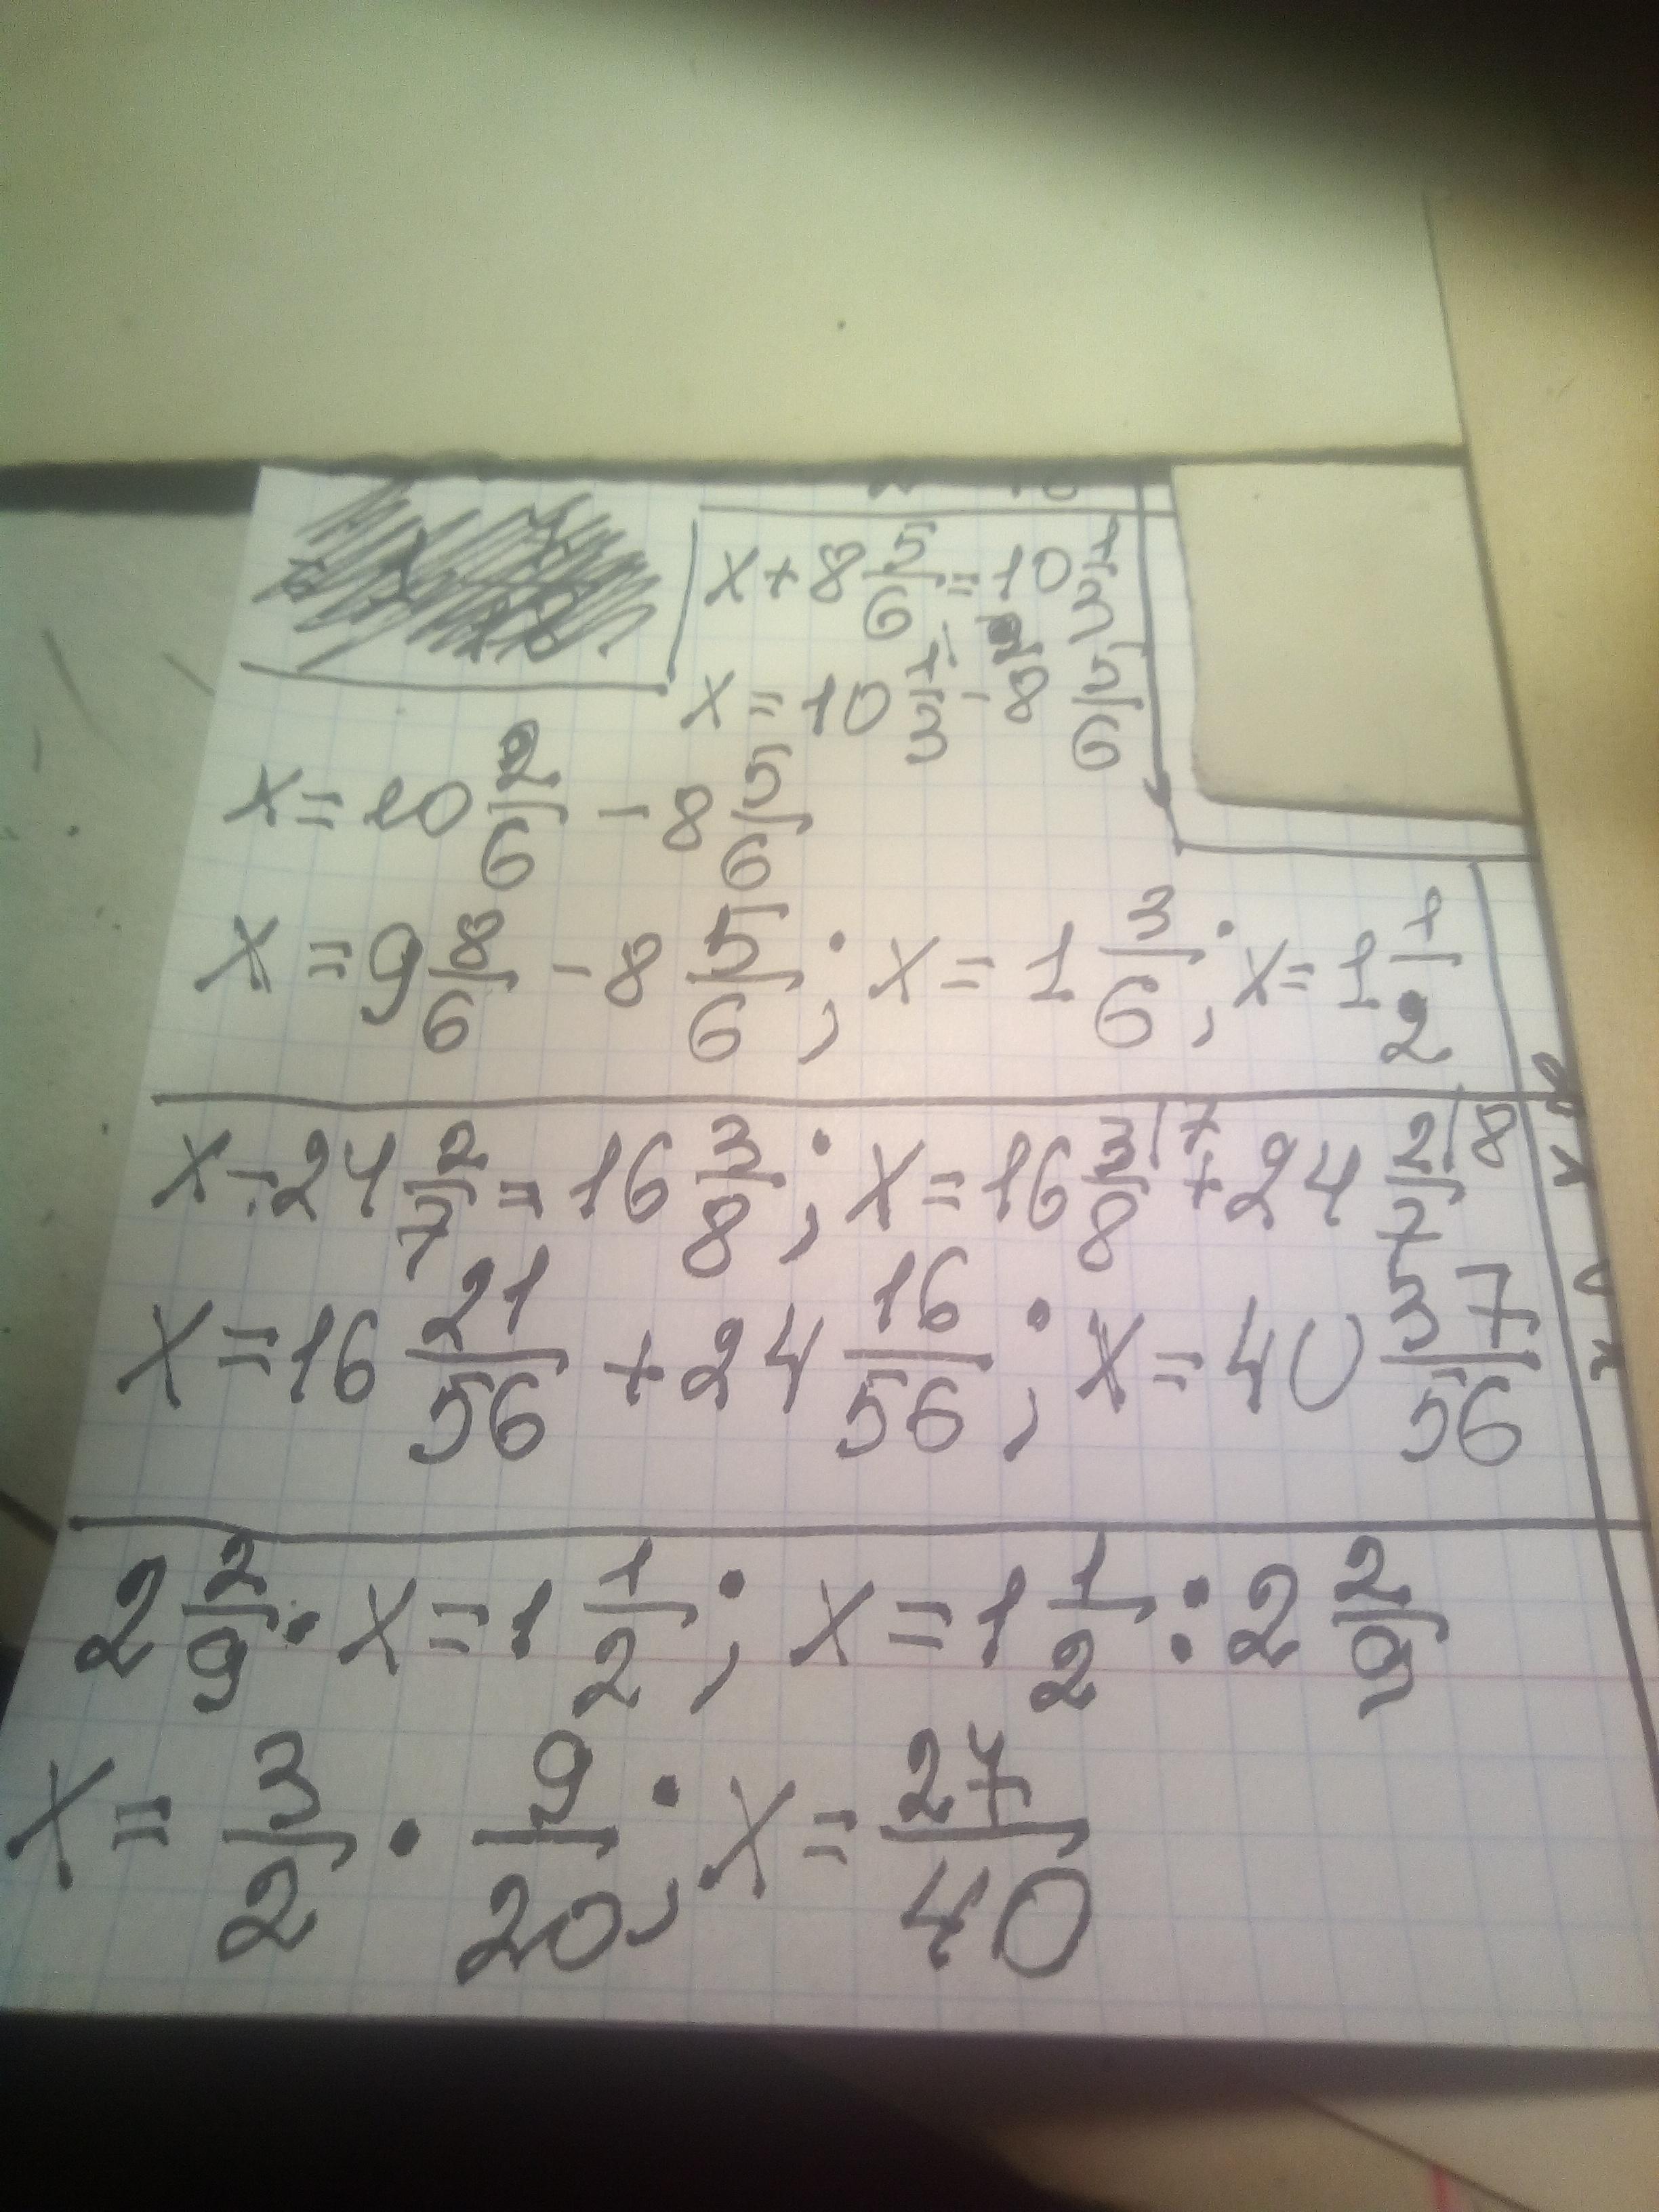 x + 8 5/6 = 10 1/3
x = 10 1/3 - 8 5/6
x = 10 2/6 - 8 5/6
x = 9 8/6 - 8 5/6 ; x = 1 3/6 ; x = 1 1/2
x - 24 2/7 = 16 3/8 ; x = 16 3/8 |7 + 24 2/7 |8
x = 16 21/56 + 24 16/56 ; x = 40 37/56
2 2/9 · x = 1 1/2 ; x = 1 1/2 : 2 2/9
x = 3/2 · 9/20 ; x = 27/40